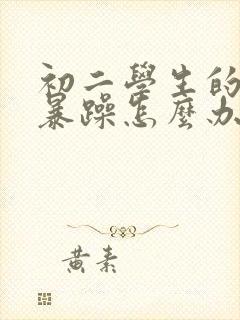 初二學生的
暴躁怎麼办
黄素